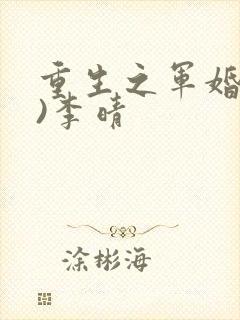 重生之军婚
)李晴
涂彬海